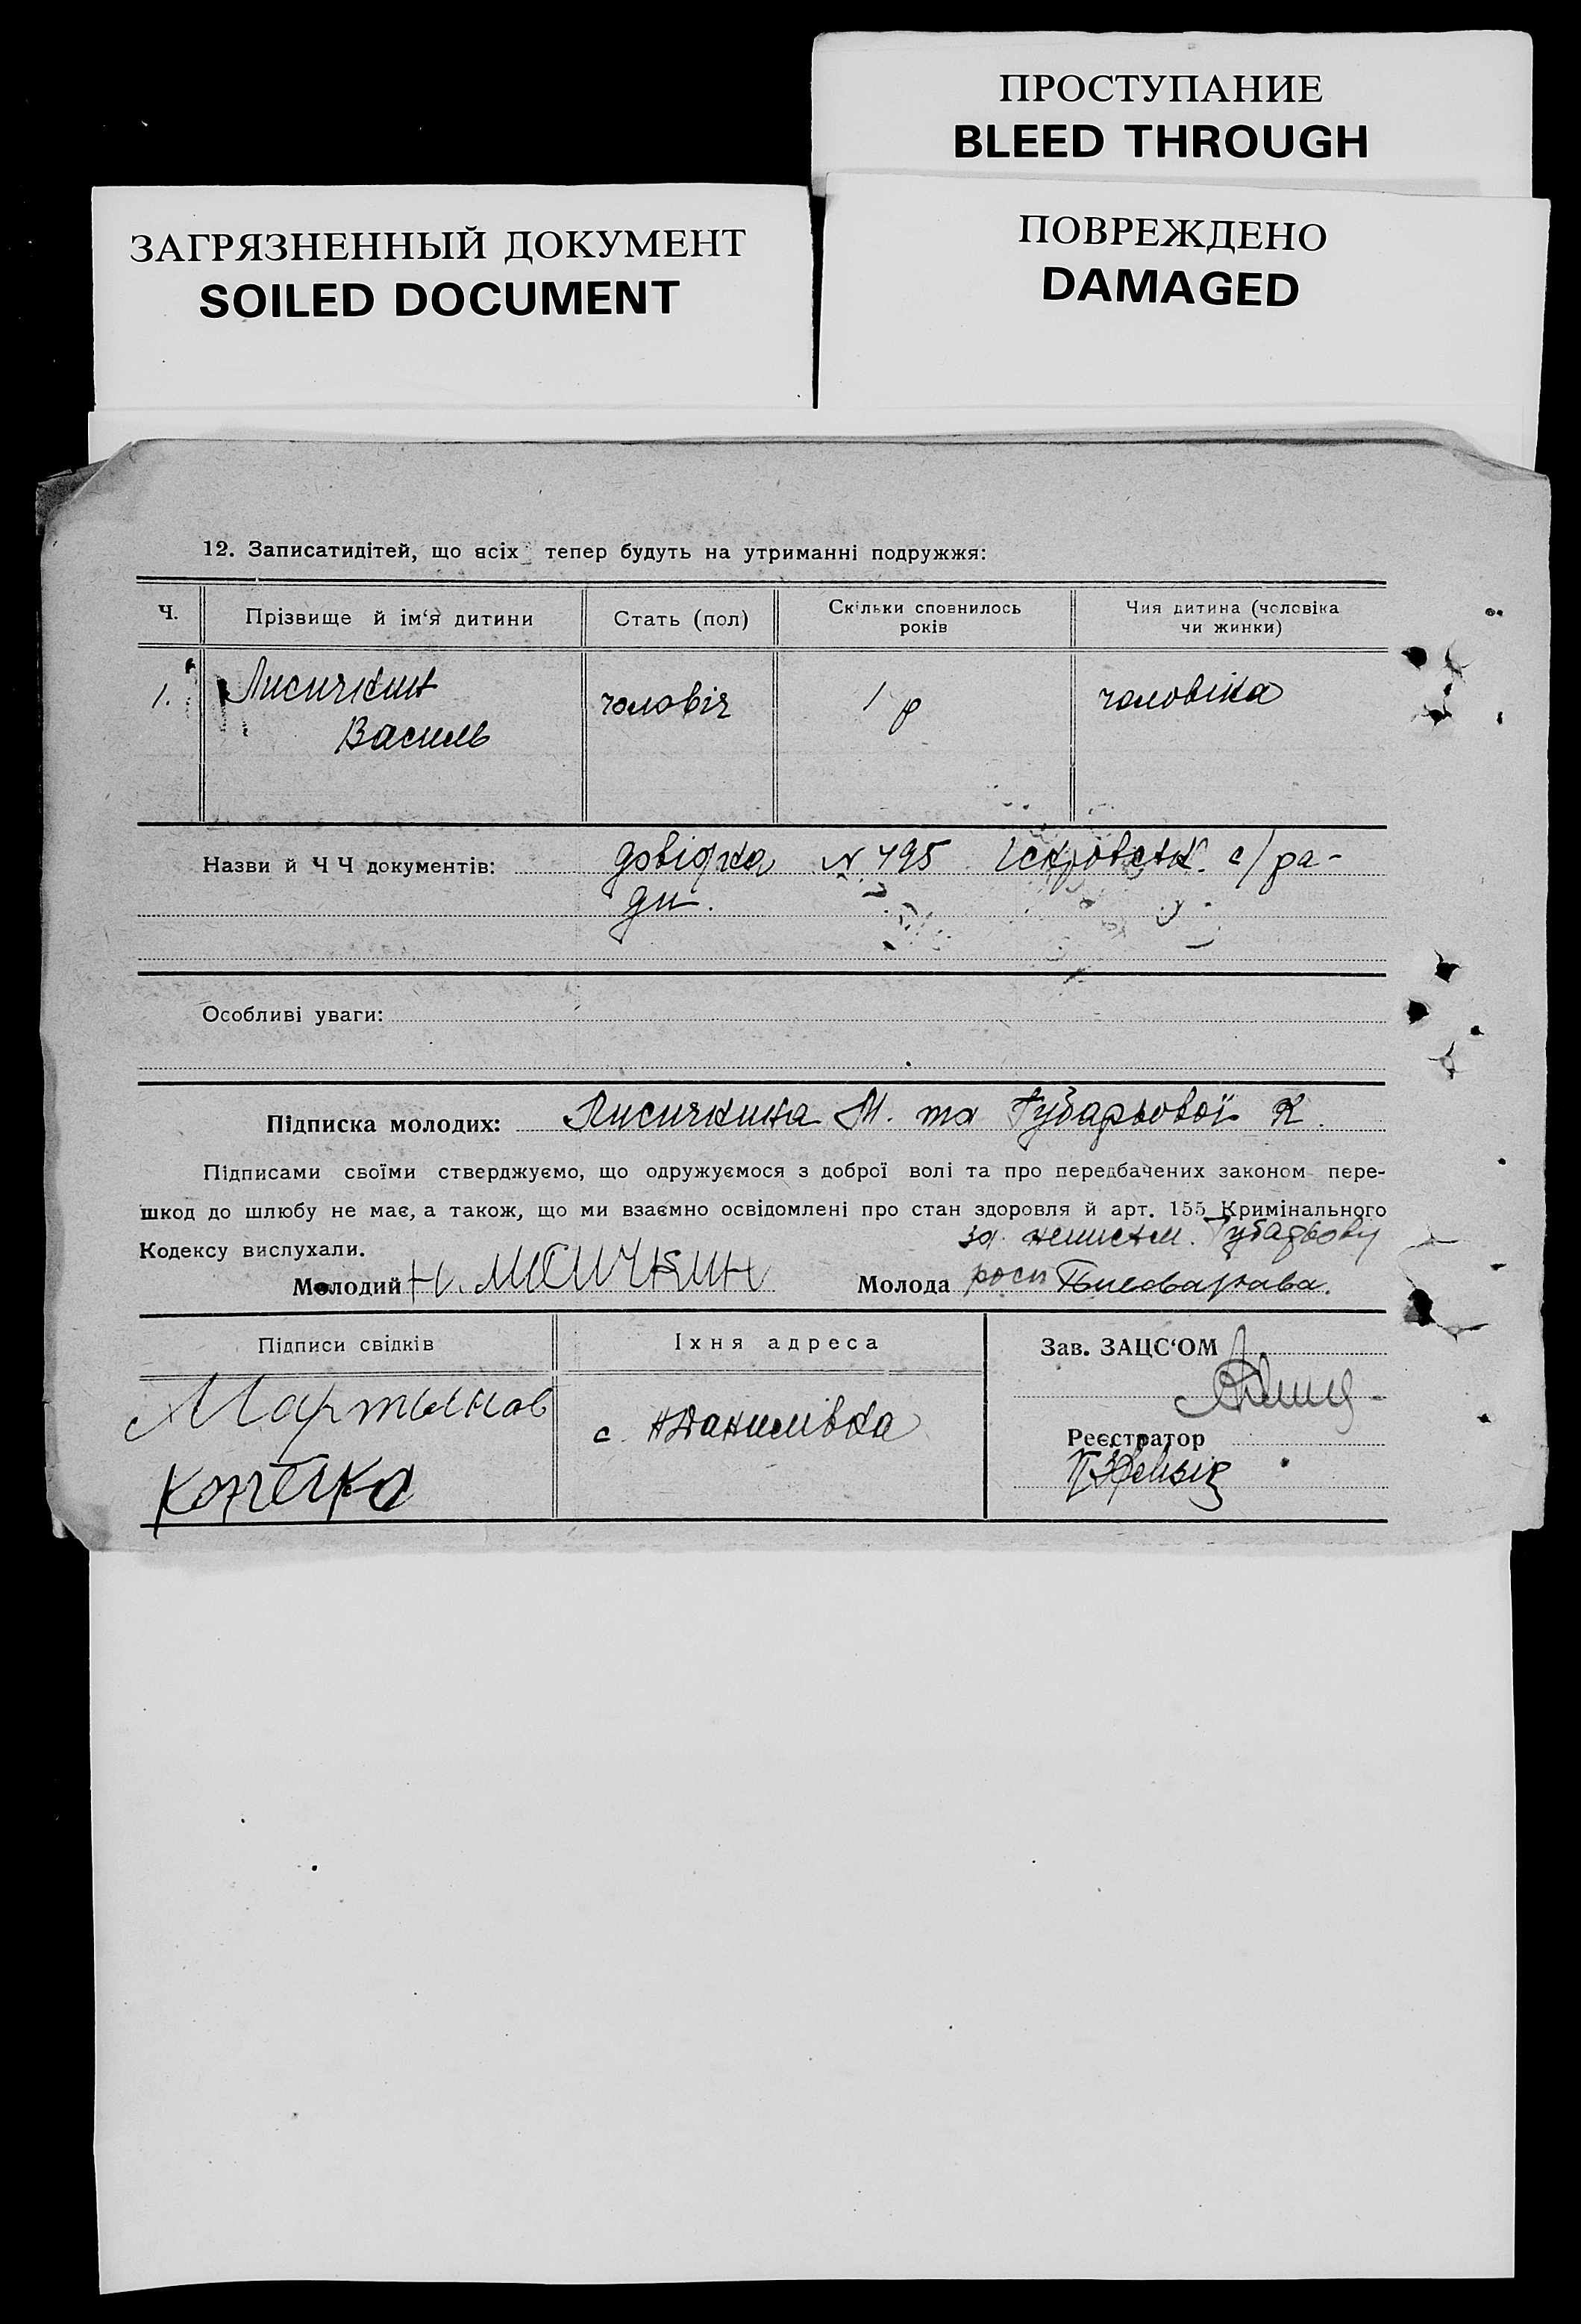 ПРОСТУПАНИЕ
BLEED THROUGH
ЗАГРЯЗНЕННЫЙ ДОКУМЕНТ
SOILED DOCUMENT
ПОВРЕЖДЕНО
DAMAGED
12. Записатидітей, що всіх тепер будуть на утриманні подружжя:
Ч. Прізвище й ім‘я дитини Стать (пол) Скільки сповнилось років Чия дитина (чоловіка чи жинки)
1. Лисичкин чоловіч 1 р чоловіка
Василь
Назви й Ч Ч документів: довідка № 495 Іскровськ. с/ра-
ди.
Особливі уваги:
Підписка молодих: Лисичкина М. та Губарьової К.
Підписами своїми стверджуємо, що одружуємося з доброї волі та про передбачених законом пере-
шкод до шлюбу не має, а також, що ми взаємно освідомлені про стан здоровля й арт. 155 Кримінального
Кодексу вислухали. за неписьм. Губарьову
Молодий Лисичкин Молода росп
Підписи свідків Їхня адреса Зав. ЗАЦС‘ОМ
Мартынов с. Данилівка
Реєстратор